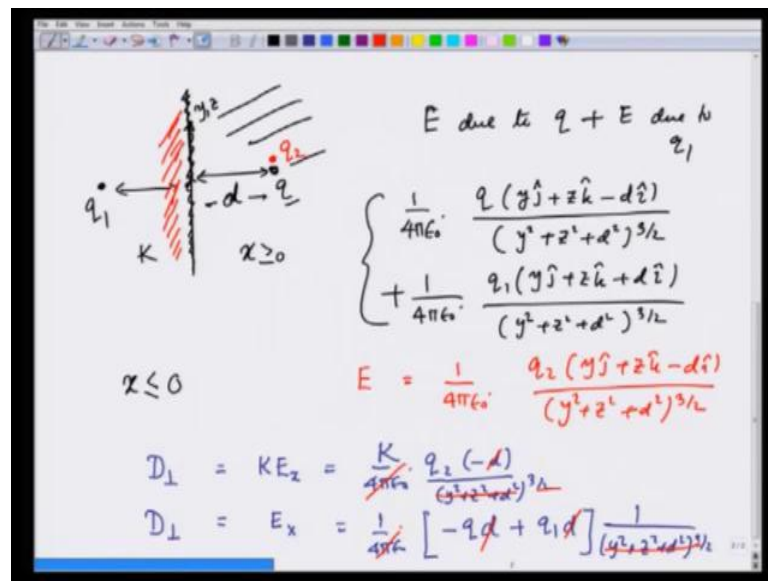 File Edit View Insert Actions Tools Help
y, z
q₂
q₁
- d → q
K
x ≥ 0
E due to q + E due to
q₁
1/4πε₀ · q(yĵ + zk̂ - dî)/(y² + z² + d²)^3/2
+ 1/4πε₀ · q₁(yĵ + zk̂ + dî)/(y² + z² + d²)^3/2
x ≤ 0
E = 1/4πε₀ · q₂(yĵ + zk̂ - dî)/(y² + z² + d²)^3/2
D⊥ = KEₓ = K/4πε₀ q₂(-d)/(y² + z² + d²)^3/2
D⊥ = Eₓ = 1/4πε₀ [-qd + q₁d] 1/(y² + z² + d²)^3/2